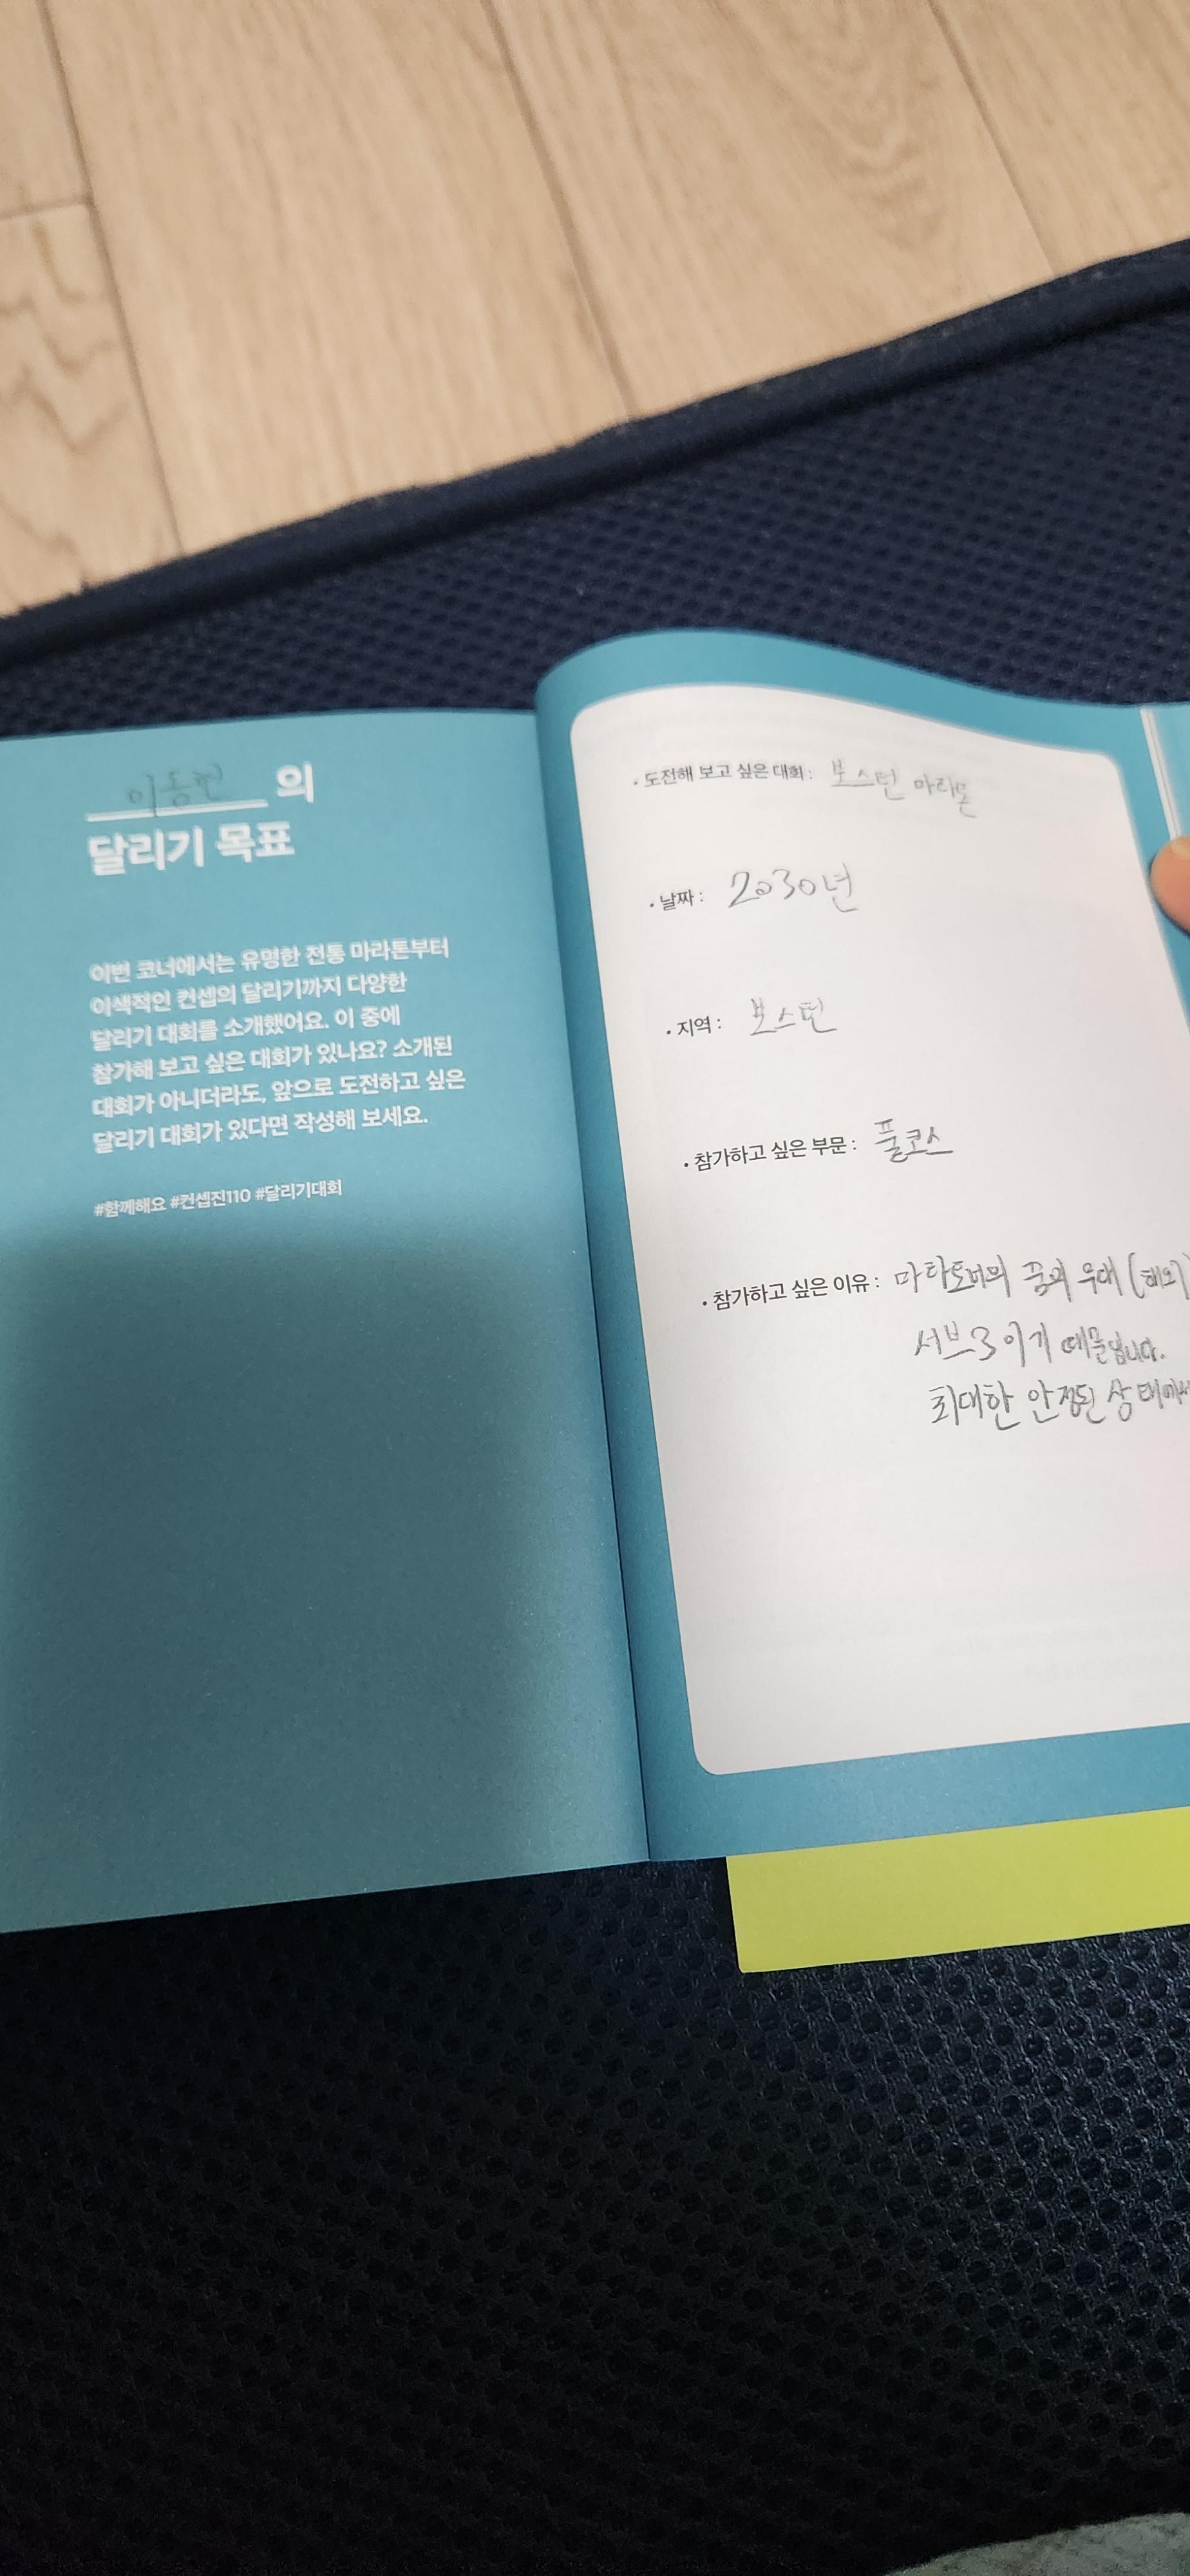 이동현 의
달리기 목표
이번 코너에서는 유명한 전통 마라톤부터
이색적인 컨셉의 달리기까지 다양한
달리기 대회를 소개했어요. 이 중에
참가해 보고 싶은 대회가 있나요? 소개된
대회가 아니더라도, 앞으로 도전하고 싶은
달리기 대회가 있다면 작성해 보세요.
#함께해요 #컨셉진110 #달리기대회
• 도전해 보고 싶은 대회 : 보스턴 마라톤
• 날짜 : 2030년
• 지역 : 보스턴
• 참가하고 싶은 부문 : 풀코스
• 참가하고 싶은 이유 : 꿈의 (해외)
서브3 이기 때문입니다.
최대한 안정된 상태에서